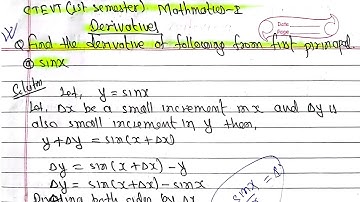 CTEVT (1st semester) Mathmatics-I
Derivatives
Date
Page
Q Find the derivative of following from first principal.
@ sinx
Solution Let, y = sinx
Let, Δx be a small increment in x and Δy is
also small increment in y then,
y + Δy = sin(x + Δx)
Δy = sin(x + Δx) - y
Δy = sin(x + Δx) - sinx
Dividing both sides by Δx
sinx